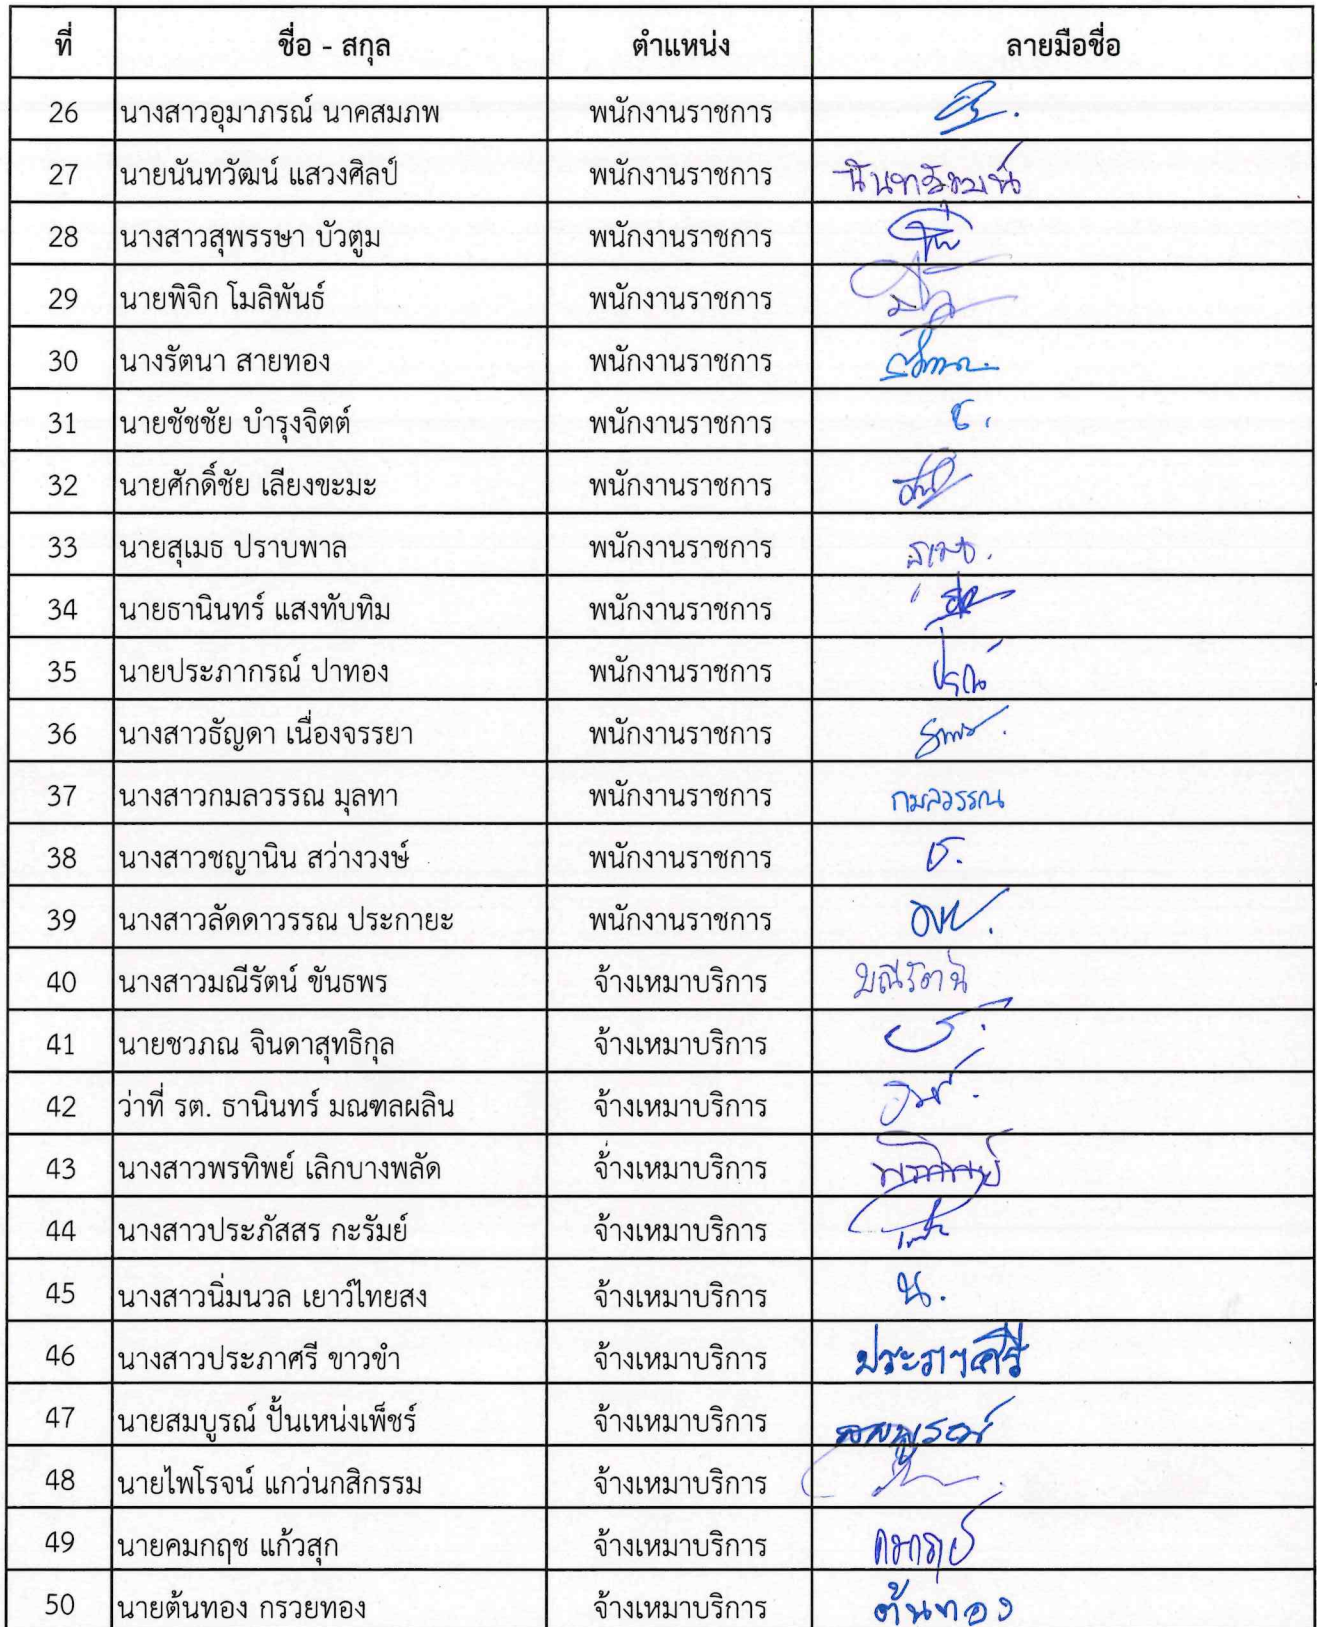 ที่ ชื่อ - สกุล ตำแหน่ง ลายมือชื่อ
26 นางสาวอุมาภรณ์ นาคสมภพ พนักงานราชการ
27 นายนันทวัฒน์ แสวงศิลป์ พนักงานราชการ นันทวัฒน์
28 นางสาวสุพรรษา บัวตูม พนักงานราชการ
29 นายพิจิก โมลิพันธ์ พนักงานราชการ
30 นางรัตนา สายทอง พนักงานราชการ
31 นายชัชชัย บำรุงจิตต์ พนักงานราชการ
32 นายศักดิ์ชัย เลียงขะมะ พนักงานราชการ
33 นายสุเมธ ปราบพาล พนักงานราชการ สุเมธ.
34 นายธานินทร์ แสงทับทิม พนักงานราชการ
35 นายประภากรณ์ ปาทอง พนักงานราชการ
36 นางสาวธัญดา เนื่องจรรยา พนักงานราชการ
37 นางสาวกมลวรรณ มุลทา พนักงานราชการ กมลวรรณ
38 นางสาวชญานิน สว่างวงษ์ พนักงานราชการ ช.
39 นางสาวลัดดาวรรณ ประกายะ พนักงานราชการ
40 นางสาวมณีรัตน์ ขันธพร จ้างเหมาบริการ มณีรัตน์
41 นายชวภณ จินดาสุทธิกุล จ้างเหมาบริการ
42 ว่าที่ รต. ธานินทร์ มณฑลผลิน จ้างเหมาบริการ
43 นางสาวพรทิพย์ เลิกบางพลัด จ้างเหมาบริการ พรทิพย์
44 นางสาวประภัสสร กะรัมย์ จ้างเหมาบริการ
45 นางสาวนิ่มนวล เยาว์ไทยสง จ้างเหมาบริการ น.
46 นางสาวประภาศรี ขาวขำ จ้างเหมาบริการ ประภาศรี
47 นายสมบูรณ์ ปั้นเหน่งเพ็ชร์ จ้างเหมาบริการ สมบูรณ์
48 นายไพโรจน์ แกว่นกสิกรรม จ้างเหมาบริการ
49 นายคมกฤช แก้วสุก จ้างเหมาบริการ คมกฤช
50 นายต้นทอง กรวยทอง จ้างเหมาบริการ ต้นทอง